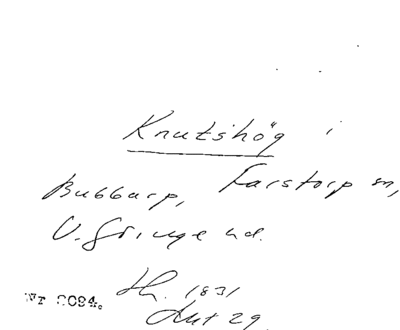 Knutshög i
Bubbarp, Farstorp sn,
V. Göinge hd.
Nr 2084. Hn. 1831
29